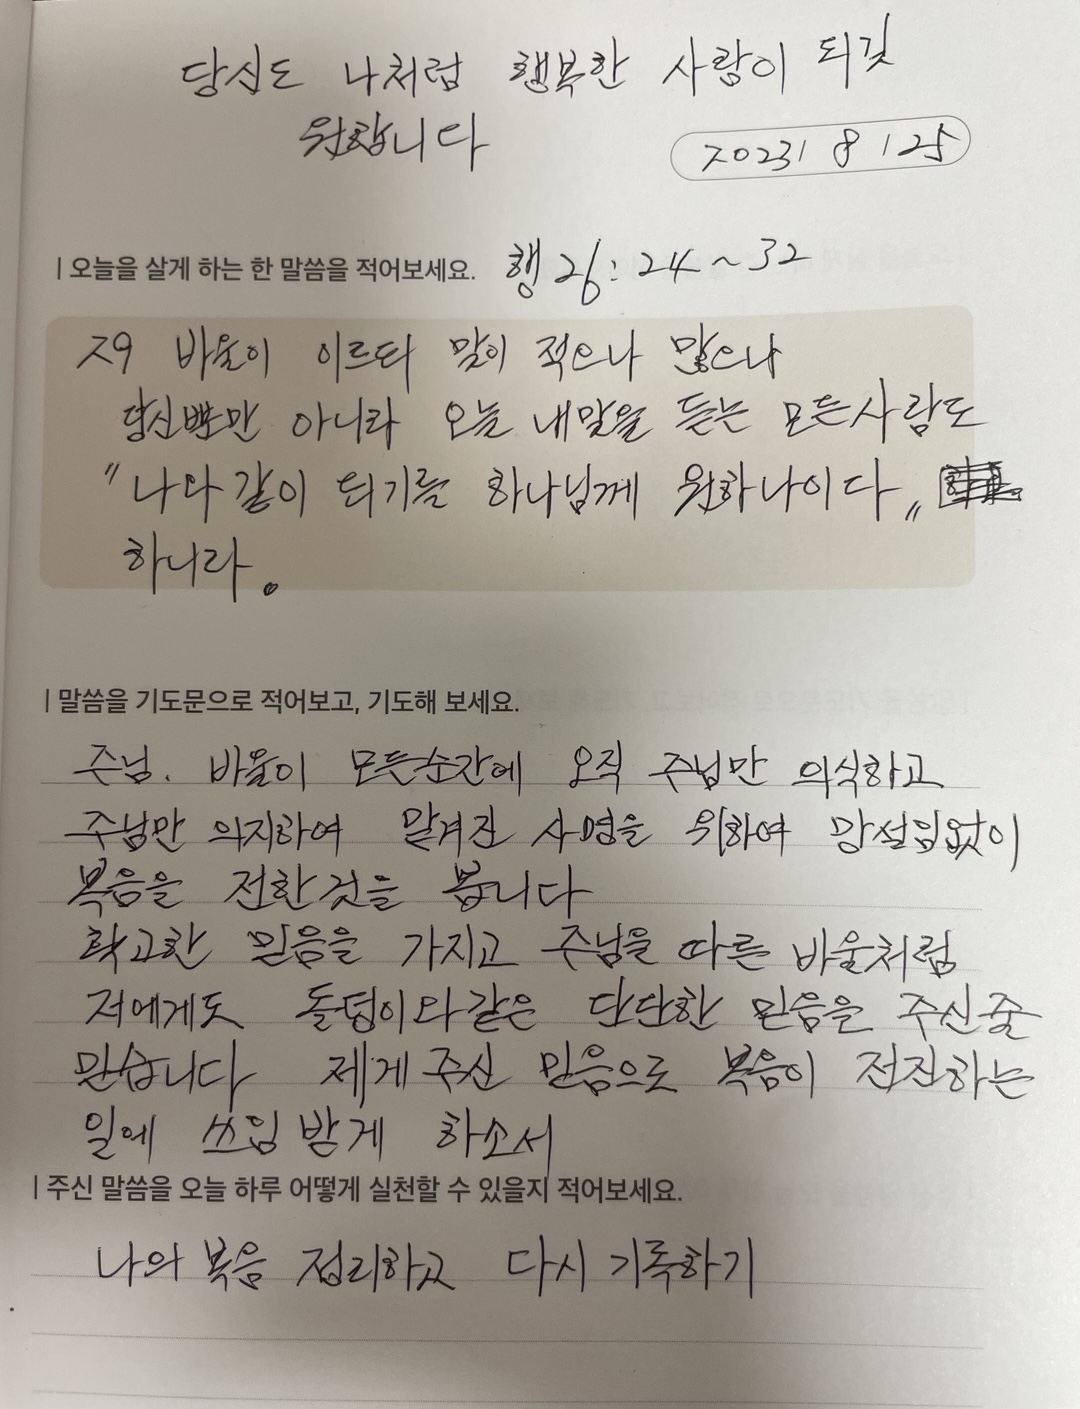 당신도 나처럼 행복한 사람이 되길
원합니다
2023 / 8 / 25
| 오늘을 살게 하는 한 말씀을 적어보세요. 행 26 : 24 ~ 32
29 바울이 이르되 말이 적으나 많으나
당신뿐만 아니라 오늘 내말을 듣는 모든사람도
"나와같이 되기를 하나님께 원하나이다"
하니라.
| 말씀을 기도문으로 적어보고, 기도해 보세요.
주님. 바울이 모든순간에 오직 주님만 의식하고
주님만 의지하여 맡겨진 사명을 위하여 망설임없이
복음을 전한것을 봅니다
확고한 믿음을 가지고 주님을 따른 바울처럼
저에게도 돌덩이와같은 단단한 믿음을 주신줄
믿습니다 제게 주신 믿음으로 복음이 전진하는
일에 쓰임 받게 하소서
| 주신 말씀을 오늘 하루 어떻게 실천할 수 있을지 적어보세요.
나의 복음 정리하고 다시 기록하기